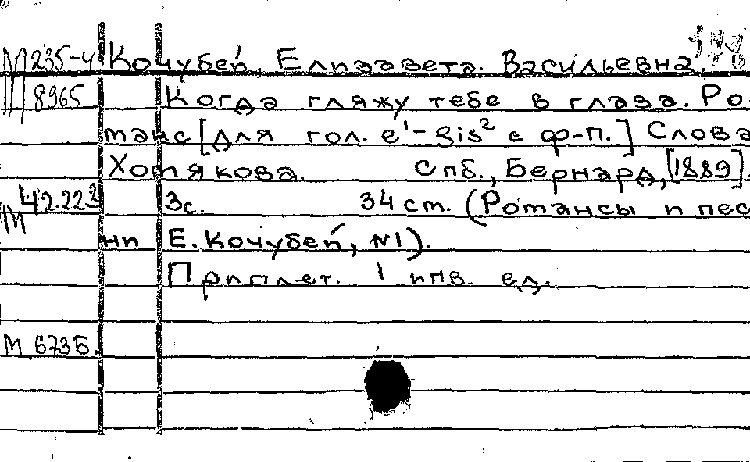 М 235-4 Кочубей, Елизавета. Васильевна
М 8965 Когда гляжу тебе в глаза. Ро
манс [Для гол. e¹-gis² с ф-п.] Слова
Хомякова. Спб., Бернард, [1889].
М 42.223 3с. 34 см. (Романсы и пес
ни Е. Кочубей, №1).
Приплет. 1 инв. ед.
М 6735.